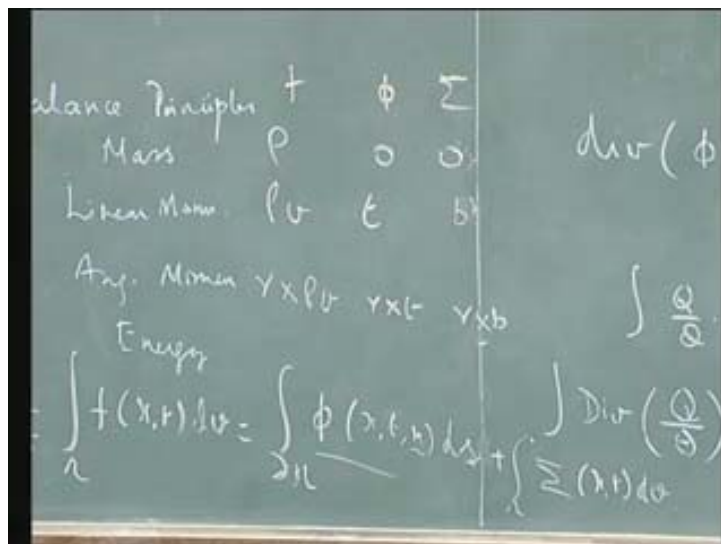 alance Principles f ϕ Σ
Mass ρ 0 0
Linear Mom. ρv t b
Ang. Momen r×ρv r×t r×b
Energy
= ∫_Ω f(x,t) dv = ∫_∂Ω ϕ(x,t,n) ds + ∫_Ω Σ(x,t) dv
div(ϕ
∫ Q/θ
∫ Div(Q/θ)